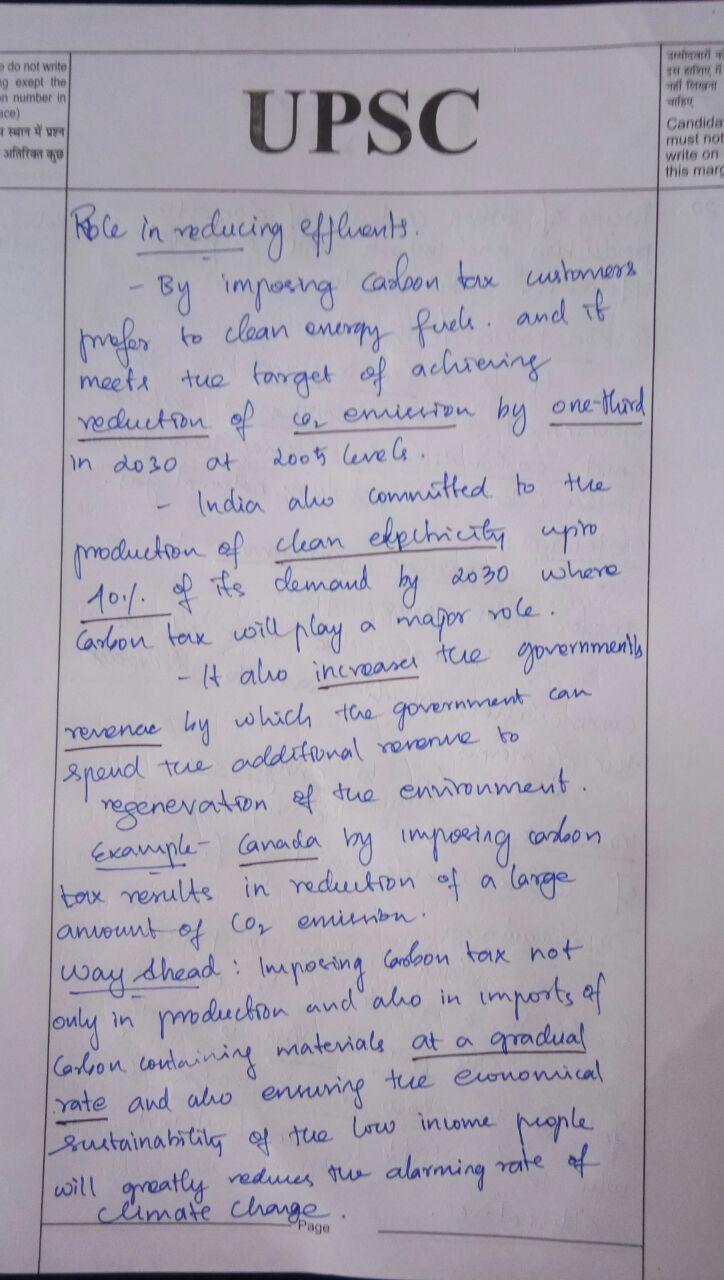 e do not write
ng exept the
on number in
ace)
स्थान में प्रश्न
अतिरिक्त कुछ
UPSC
उम्मीदवारों को
इस हाशिए में
नहीं लिखना
चाहिए
Candida
must not
write on
this marg
Role in reducing effluents.
- By imposing carbon tax customers
prefer to clean energy fuels. and it
meets the target of achieving
reduction of CO2 emission by one-third
in 2030 at 2005 levels.
- India also committed to the
production of clean electricity upto
40% of its demand by 2030 where
Carbon tax will play a major role.
- It also increases the governments
revenue by which the government can
spend the additional revenue to
regeneration of the environment.
Example- Canada by imposing carbon
tax results in reduction of a large
amount of CO2 emission.
Way Ahead : Imposing carbon tax not
only in production and also in imports of
Carbon containing materials at a gradual
rate and also ensuring the economical
sustainability of the low income people
will greatly reduces the alarming rate of
climate change.
Page